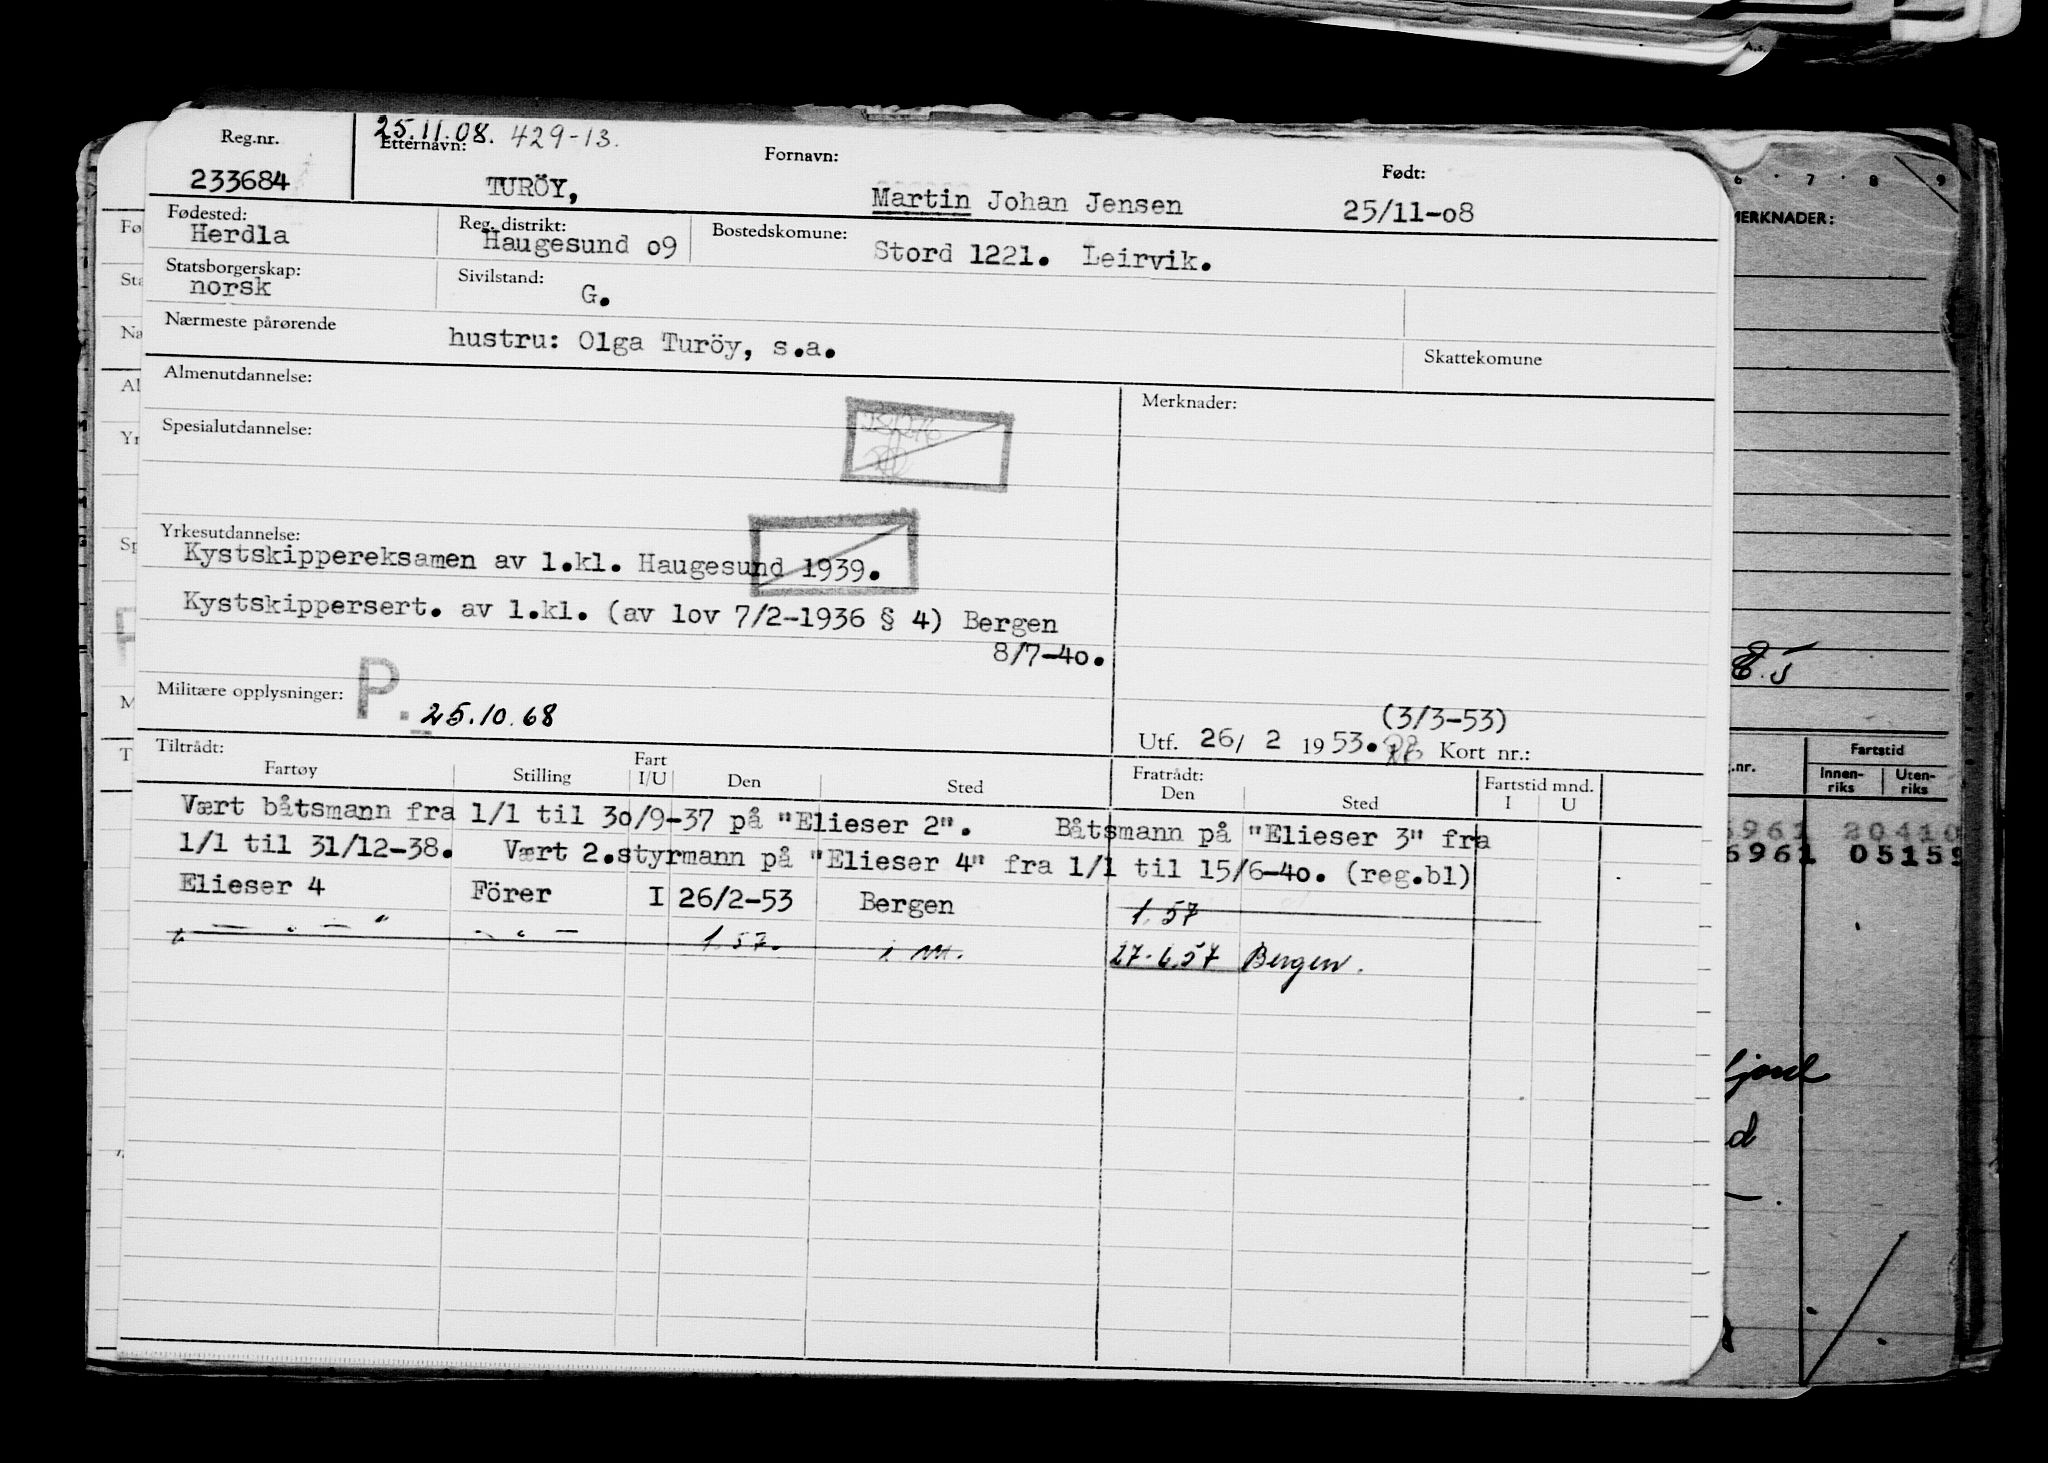 Reg.nr.
233684
25.11.08. 429-13.
Etternavn:
TURÖY,
Fornavn:
Martin Johan Jensen
Født:
25/11-08
Fødested:
Herdla
Reg. distrikt:
Haugesund 09
Bostedskomune:
Stord 1221. Leirvik.
Statsborgerskap:
norsk
Sivilstand:
G.
Nærmeste pårørende
hustru: Olga Turöy, s.a.
Skattekomune
Almenutdannelse:
Merknader:
Spesialutdannelse:
Yrkesutdannelse:
Kystskippereksamen av 1.kl. Haugesund 1939.
Kystskippersert. av 1.kl. (av lov 7/2-1936 § 4) Bergen
8/7-40.
Militære opplysninger:
P. 25.10.68
(3/3-53)
Utf. 26/ 2 1953. Kort nr.:
Tiltrådt:
Fartøy Stilling Fart I/U Den Sted
Fratrådt:
Den Sted
Fartstid mnd.
I U
Vært båtsmann fra 1/1 til 30/9-37 på "Elieser 2". Båtsmann på "Elieser 3" fra
1/1 til 31/12-38. Vært 2.styrmann på "Elieser 4" fra 1/1 til 15/6-40. (reg.bl)
Elieser 4 Förer I 26/2-53 Bergen 1.57
— " — " — " — 1.57. i m. 27.6.57 Bergen.
6 . 7 . 8 9
MERKNADER:
E.J
.nr.
Fartstid
Innen-
riks
Uten-
riks
6961 20410
6961 05159
fjord
d